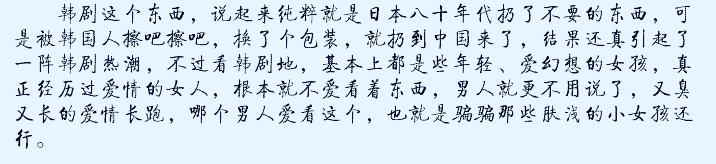 韩剧这个东西，说起来纯粹就是日本八十年代扔了不要的东西，可
是被韩国人擦吧擦吧，换了个包装，就扔到中国来了，结果还真引起了
一阵韩剧热潮，不过看韩剧地，基本上都是些年轻、爱幻想的女孩，真
正经历过爱情的女人，根本就不爱看着东西，男人就更不用说了，又臭
又长的爱情长跑，哪个男人爱看这个，也就是骗骗那些肤浅的小女孩还
行。